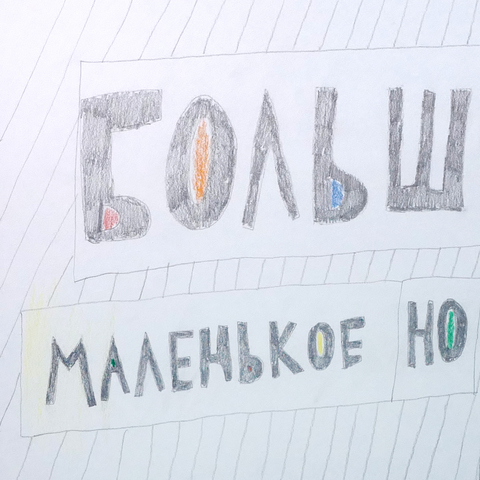 БОЛЬШ
МАЛЕНЬКОЕ НО